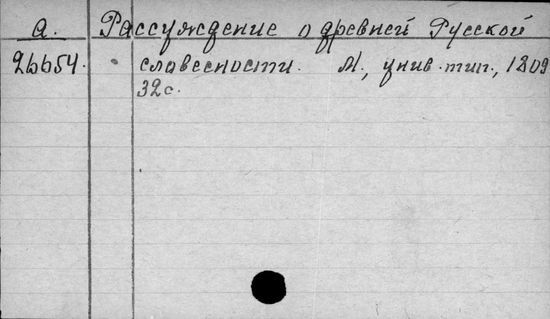 а. Рассуждение о древней Русской
26654. словесности. М., унив. тип., 1809
32 с.